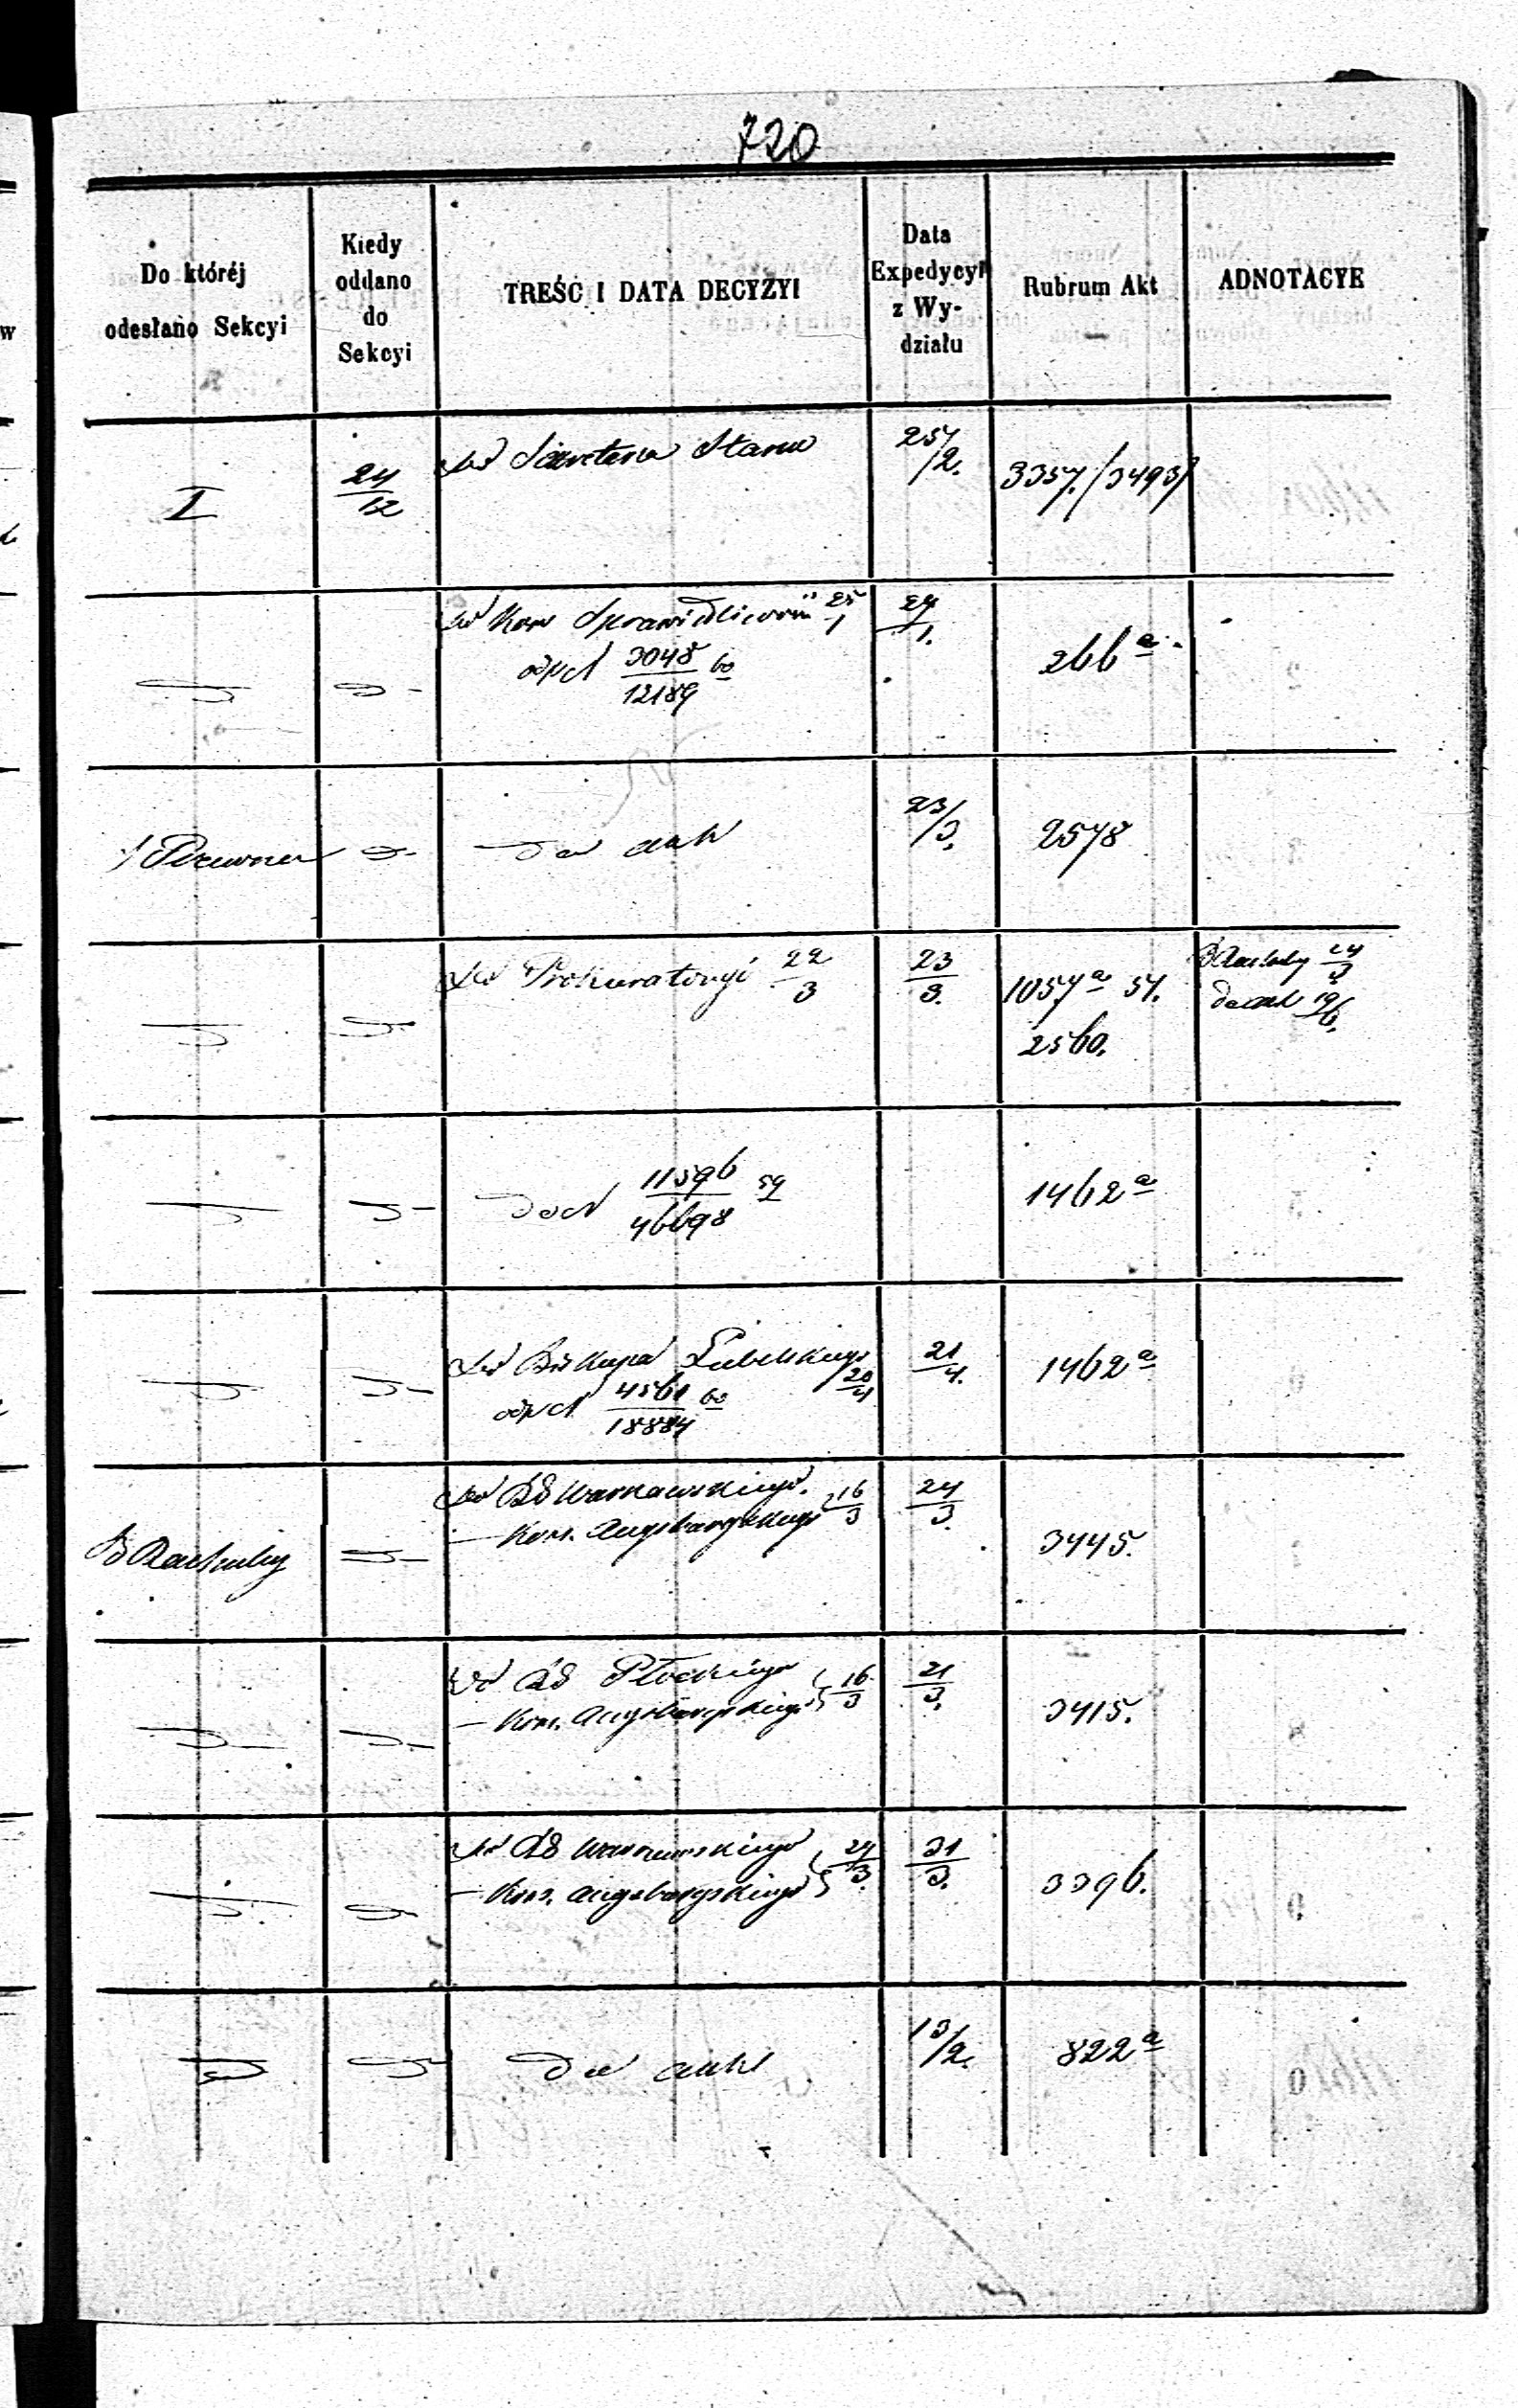 720
Do któréj odesłano Sekcyi
Kiedy oddano do Sekcyi
TREŚĆ I DATA DECYZYI
Data Expedycyi z Wydziału
Rubrum Akt
ADNOTACYE
I
24/12
Do Sekretarza Stanu
25/2.
3357. /3493/
Do Kom Sprawiedliwości 25/1
24/1.
odpd 3048/12189 60
266 a
Prawna
do akt
23/3.
2578
Do Prokuratoryi 22/3
23/3.
1057 a 57.
2560.
B Rachuby 24/3
do akt 19/6.
do N 11596/46698 59
1462 a
Do Biskupa Lubelskiego 20/4
odpd 4561/18884 60
21/4.
1462 a
B Rachuby
Do RG Warszawskiego
— Kons. Augsburgskiego 16/3
24/3.
3445.
Do RG Płockiego
— Kons. Augsburgskiego 16/3
21/3.
3415.
Do RG Warszawskiego
— Kons. Augsburgskiego 24/3.
31/3.
3396.
do akt
13/2.
822 a